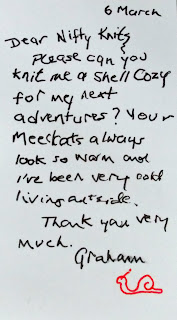 6 March
Dear Nifty Knits
Please can you
knit me a shell cozy
for my next
adventures? Your
Meerkats always
look so warm and
I've been very cold
living outside.
Thank you very
much.
Graham